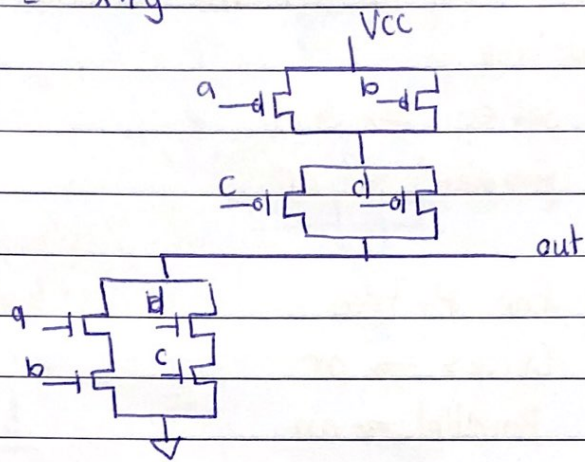 x+y
VCC
a b
c d
out
a d
b c